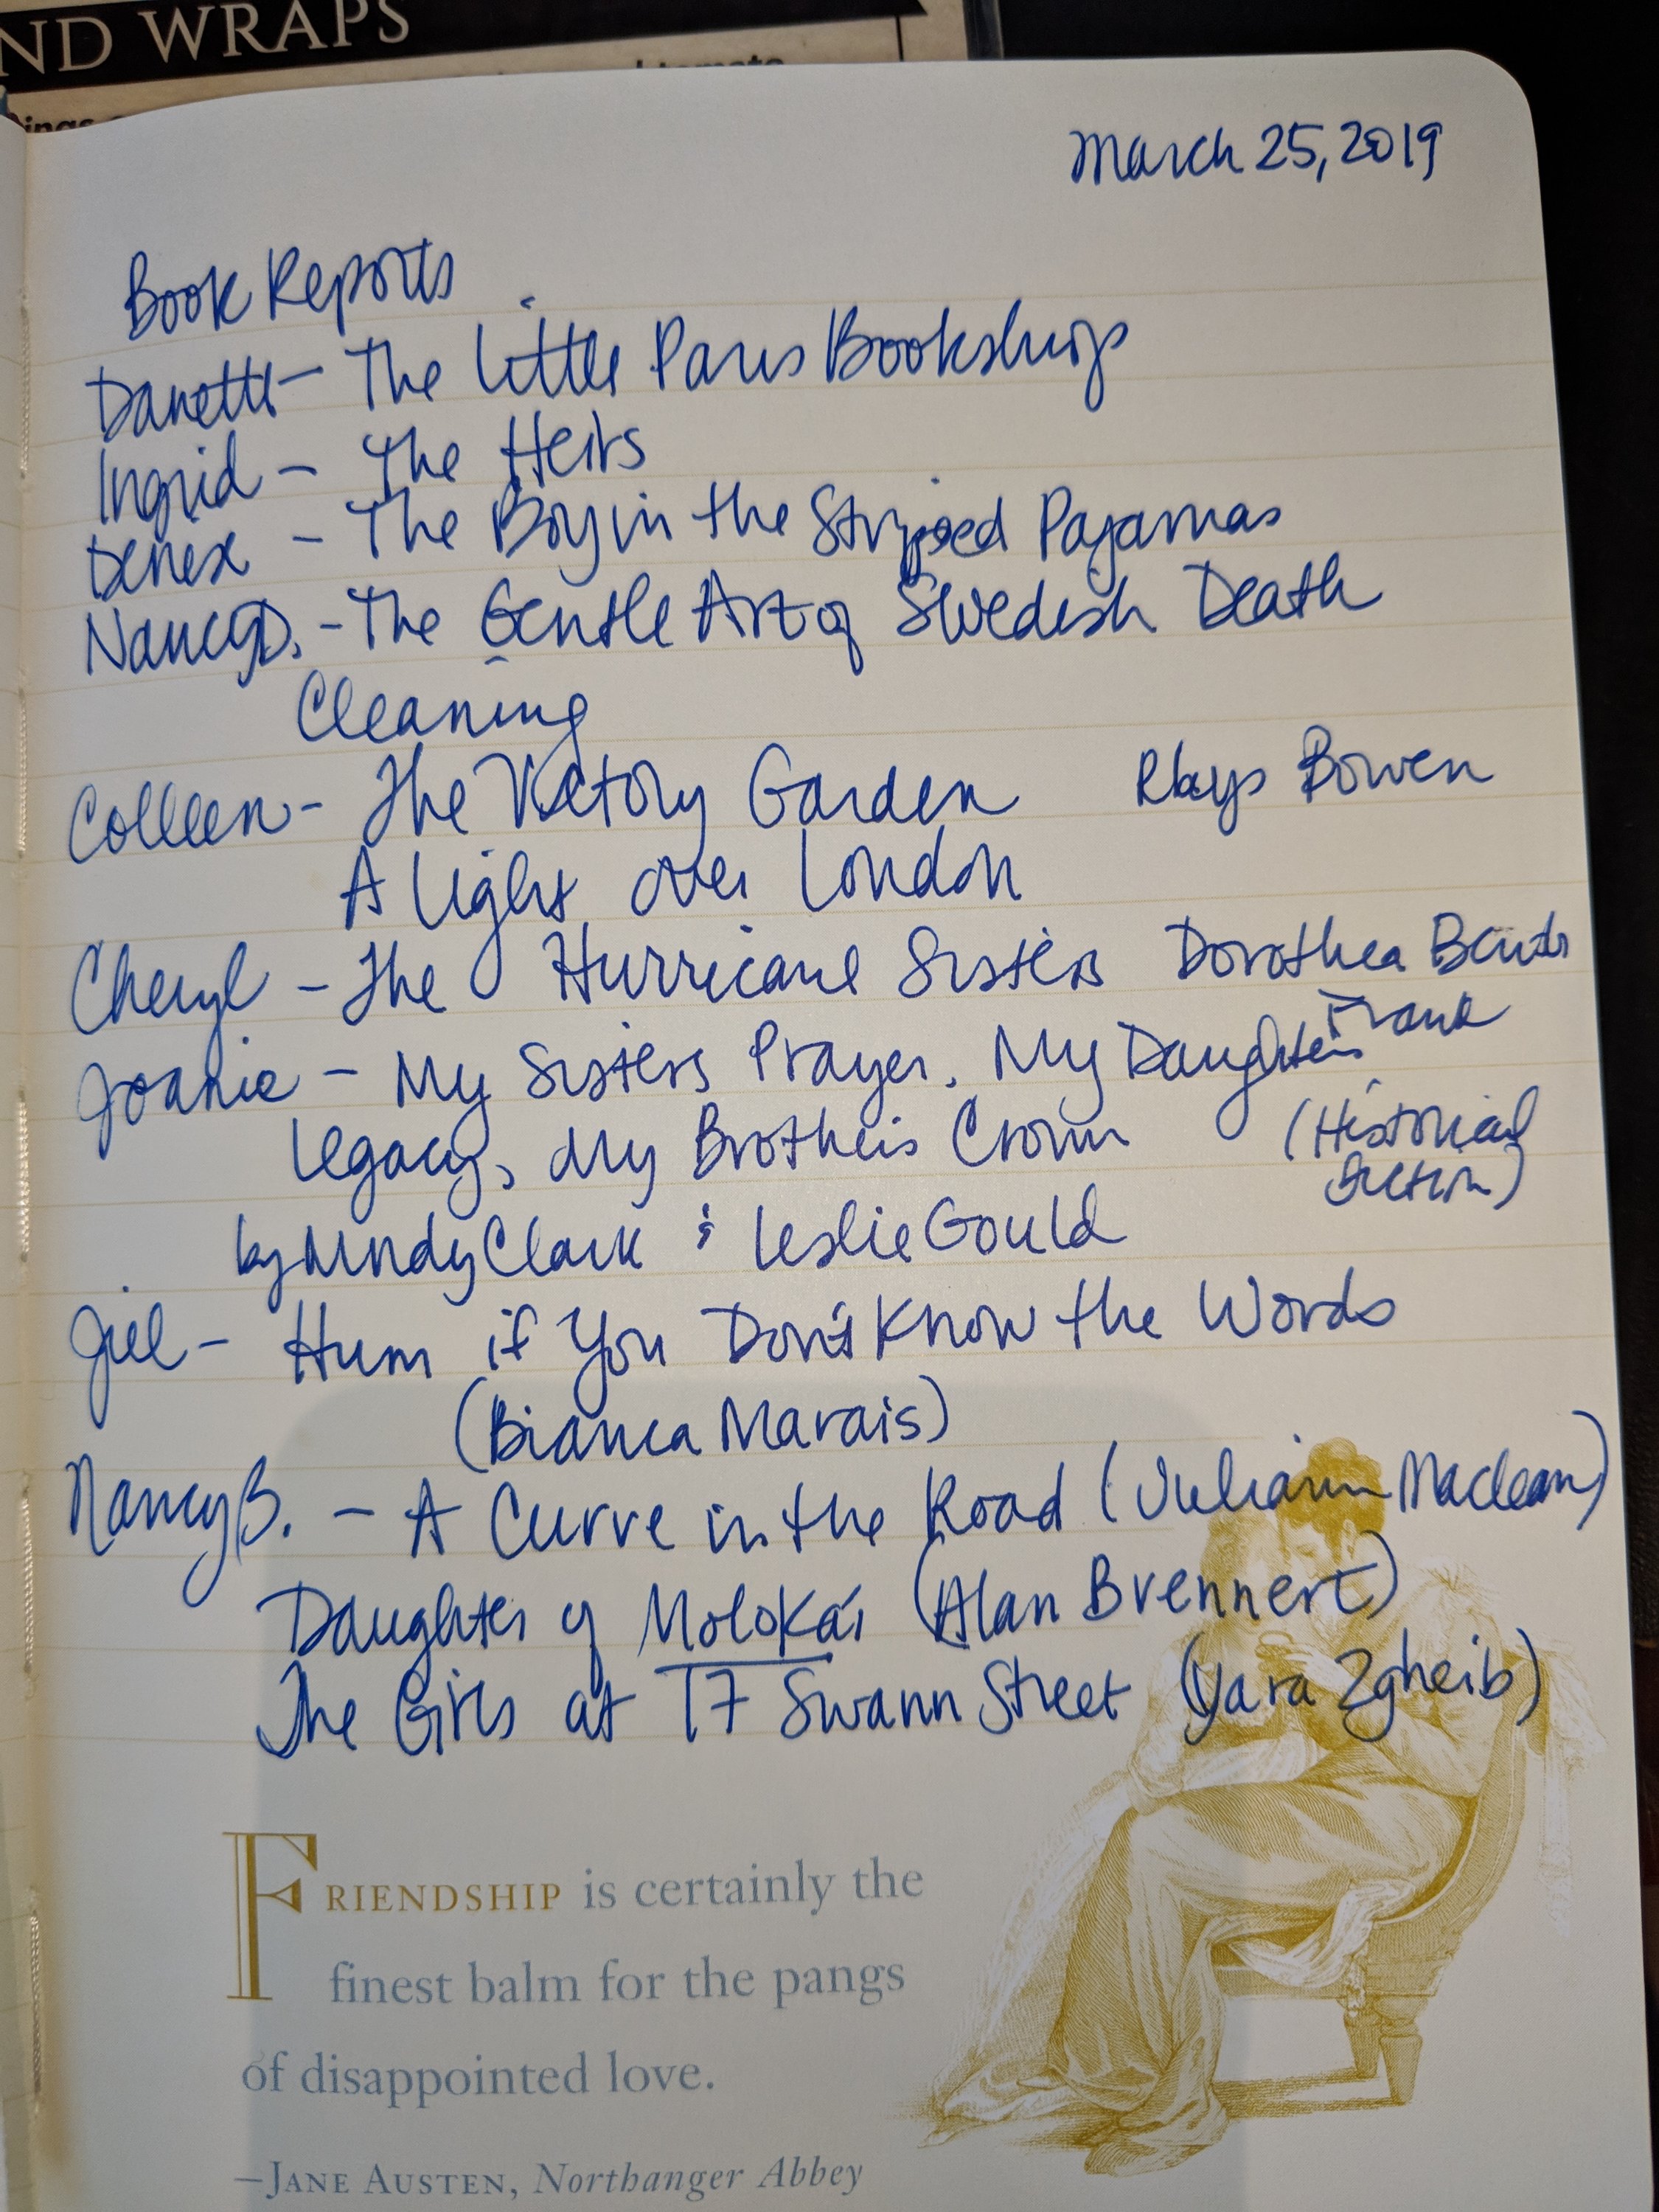 ND WRAPS
March 25, 2019
Book Reports
Danette - The Little Paris Bookshop
Ingrid - The Heirs
Denise - The Boy in the Striped Pajamas
Nancy D. - The Gentle Art of Swedish Death
Cleaning
Colleen - The Victory Garden Rhys Bowen
A Light over London
Cheryl - The Hurricane Sisters Dorothea Benton
Frank
Joanie - My Sisters Prayer, My Daughters
Legacy, My Brothers Crown (Historical
fiction)
by Mindy Clark & Leslie Gould
Jill - Hum if You Don't Know the Words
(Bianca Marais)
Nancy B. - A Curve in the Road (Julianne Maclean)
Daughter of Moloka'i (Alan Brennert)
The Girls at 17 Swann Street (Yara Zgheib)
FRIENDSHIP is certainly the
finest balm for the pangs
of disappointed love.
—JANE AUSTEN, Northanger Abbey